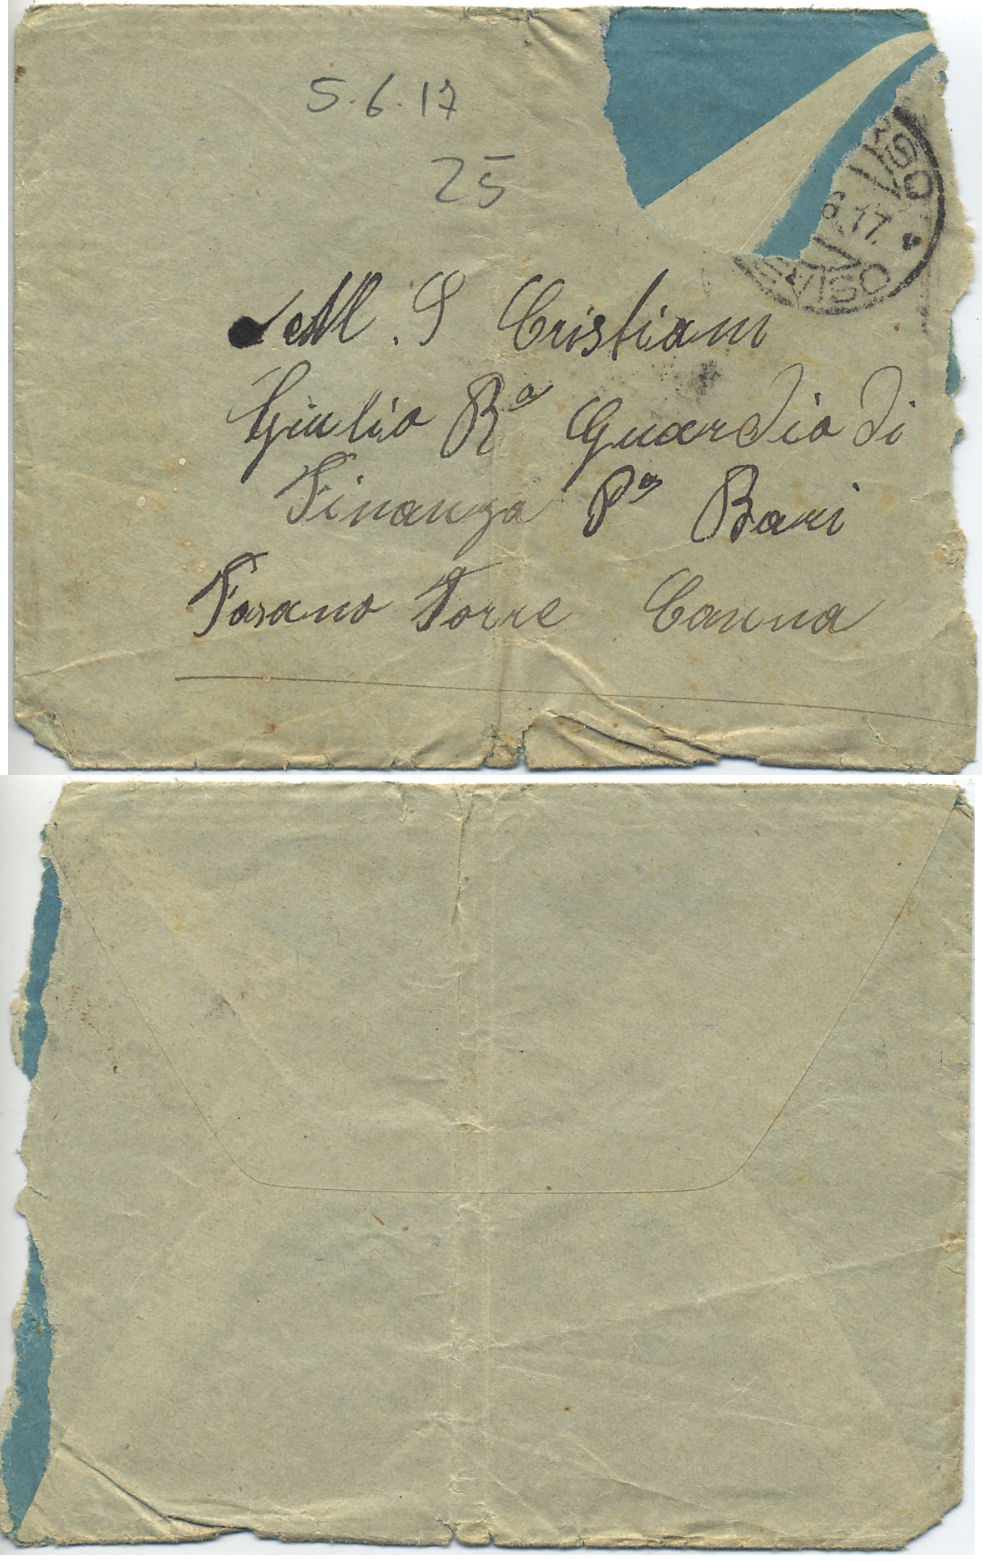 5.6.17
25
All . S Cristiani
Giulio Rª Guardia di
Finanza Pª Bari
Fasano Torre Canna
6.17